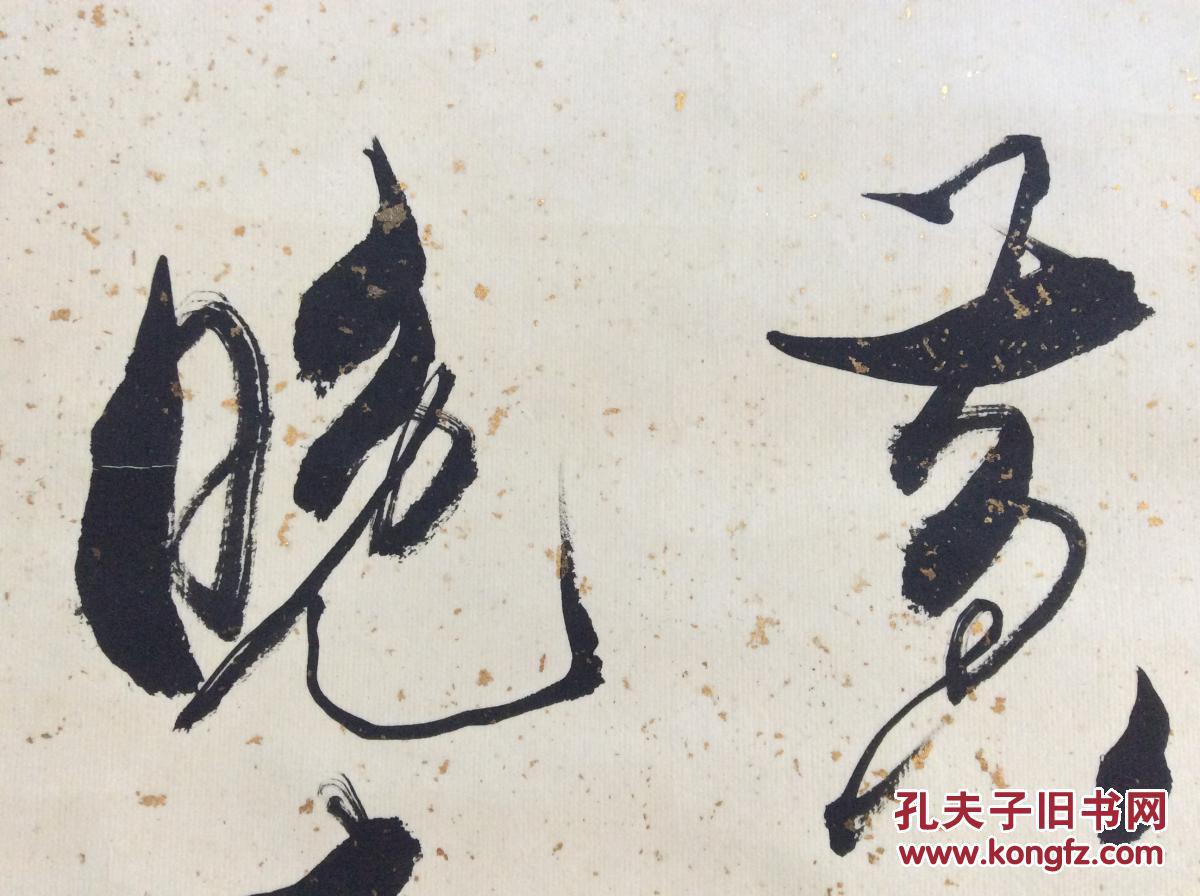 黄
晚
孔夫子旧书网
www.kongfz.com